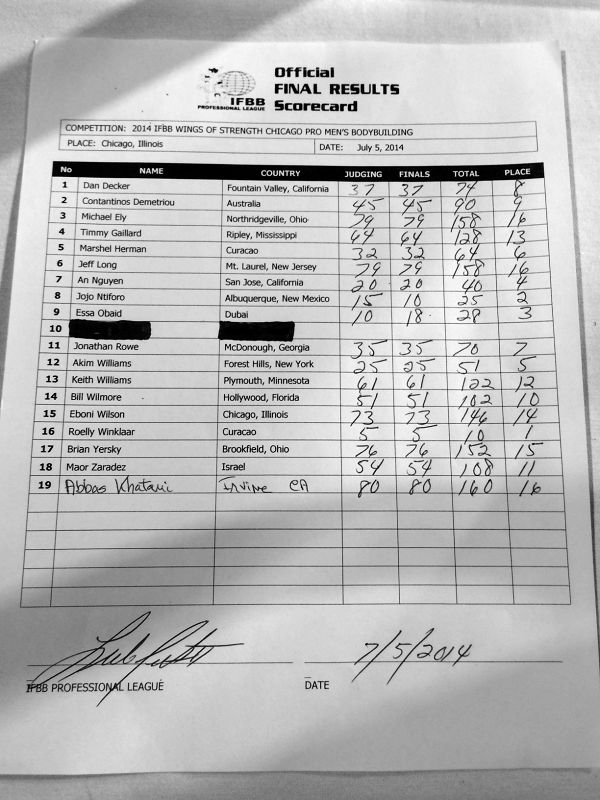 Official
FINAL RESULTS
Scorecard
IFBB
PROFESSIONAL LEAGUE
COMPETITION: 2014 IFBB WINGS OF STRENGTH CHICAGO PRO MEN'S BODYBUILDING
PLACE: Chicago, Illinois DATE: July 5, 2014
No NAME COUNTRY JUDGING FINALS TOTAL PLACE
1 Dan Decker Fountain Valley, California 37 37 74 8
2 Contantinos Demetriou Australia 45 45 90 9
3 Michael Ely Northridgeville, Ohio 79 79 158 16
4 Timmy Gaillard Ripley, Mississippi 64 64 128 13
5 Marshel Herman Curacao 32 32 64 6
6 Jeff Long Mt. Laurel, New Jersey 79 79 158 16
7 An Nguyen San Jose, California 20 20 40 4
8 Jojo Ntiforo Albuquerque, New Mexico 15 10 25 2
9 Essa Obaid Dubai 10 18 28 3
10
11 Jonathan Rowe McDonough, Georgia 35 35 70 7
12 Akim Williams Forest Hills, New York 25 25 51 5
13 Keith Williams Plymouth, Minnesota 61 61 122 12
14 Bill Wilmore Hollywood, Florida 51 51 102 10
15 Eboni Wilson Chicago, Illinois 73 73 146 14
16 Roelly Winklaar Curacao 5 5 10 1
17 Brian Yersky Brookfield, Ohio 76 76 152 15
18 Maor Zaradez Israel 54 54 108 11
19 Abbas Khatami Irvine CA 80 80 160 16
7/5/2014
IFBB PROFESSIONAL LEAGUE DATE